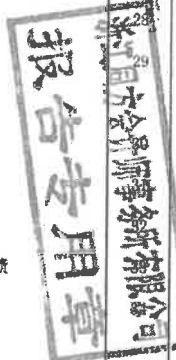 28
29
方会计师事务所有限公司
报告专用章